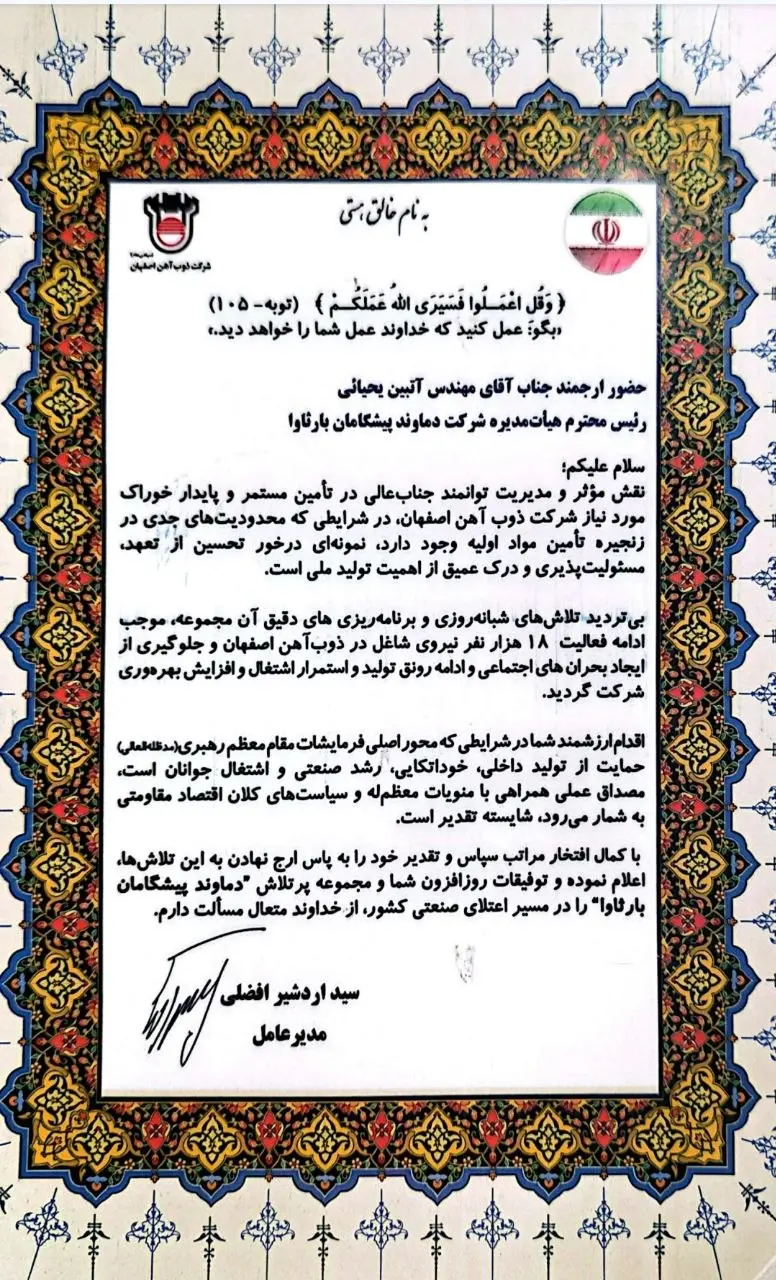 به نام خالق هستی
شرکت ذوب آهن اصفهان
﴿ وَقُل اعْمَـلُوا فَسَیَرَی اللهُ عَمَلَکُـمْ ﴾ (توبه- ۱۰۵)
«بگو: عمل کنید که خداوند عمل شما را خواهد دید.»
حضور ارجمند جناب آقای مهندس آتبین یحیائی
رئیس محترم هیأت‌مدیره شرکت دماوند پیشگامان بارثاوا
سلام علیکم؛
نقش مؤثر و مدیریت توانمند جناب‌عالی در تأمین مستمر و پایدار خوراک
مورد نیاز شرکت ذوب آهن اصفهان، در شرایطی که محدودیت‌های جدی در
زنجیره تأمین مواد اولیه وجود دارد، نمونه‌ای درخور تحسین از تعهد،
مسئولیت‌پذیری و درک عمیق از اهمیت تولید ملی است.
بی‌تردید تلاش‌های شبانه‌روزی و برنامه‌ریزی های دقیق آن مجموعه، موجب
ادامه فعالیت ۱۸ هزار نفر نیروی شاغل در ذوب‌آهن اصفهان و جلوگیری از
ایجاد بحران های اجتماعی و ادامه رونق تولید و استمرار اشتغال و افزایش بهره‌وری
شرکت گردید.
اقدام ارزشمند شما در شرایطی که محور اصلی فرمایشات مقام معظم رهبری(مدظله‌العالی)
حمایت از تولید داخلی، خوداتکایی، رشد صنعتی و اشتغال جوانان است،
مصداق عملی همراهی با منویات معظم‌له و سیاست‌های کلان اقتصاد مقاومتی
به شمار می‌رود، شایسته تقدیر است.
با کمال افتخار مراتب سپاس و تقدیر خود را به پاس ارج نهادن به این تلاش‌ها،
اعلام نموده و توفیقات روزافزون شما و مجموعه پرتلاش "دماوند پیشگامان
بارثاوا" را در مسیر اعتلای صنعتی کشور، از خداوند متعال مسألت دارم.
سید اردشیر افضلی
مدیرعامل